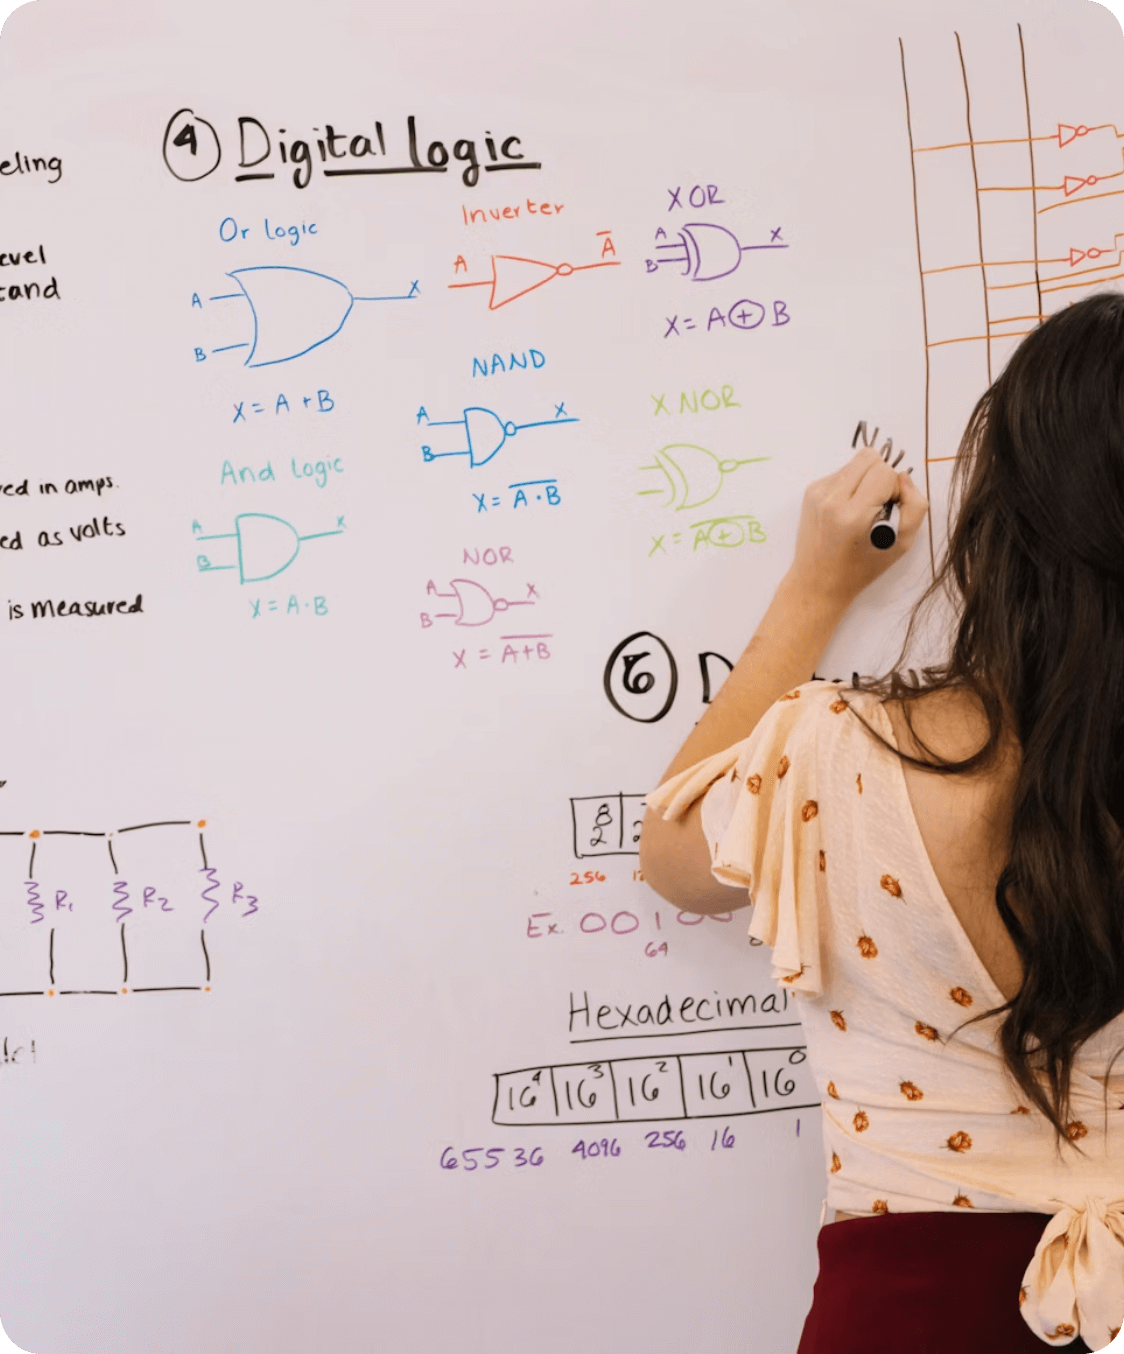 eling
evel
tand
red in amps.
ed as volts
is measured
④ Digital logic
Or logic
A
B
X
X = A + B
And logic
A
B
X
X = A · B
Inverter
A
A̅
NAND
A
B
X
X = A̅ ̅·̅ ̅B̅
NOR
A
B
X
X = A̅+̅B̅
XOR
A
B
X
X = A ⊕ B
X NOR
X = A̅ ̅⊕̅ ̅B̅
R₁
R₂
R₃
D
2⁸
256
Ex. 001
64
Hexadecimal
16⁴ 16³ 16² 16¹ 16⁰
65536 4096 256 16 1